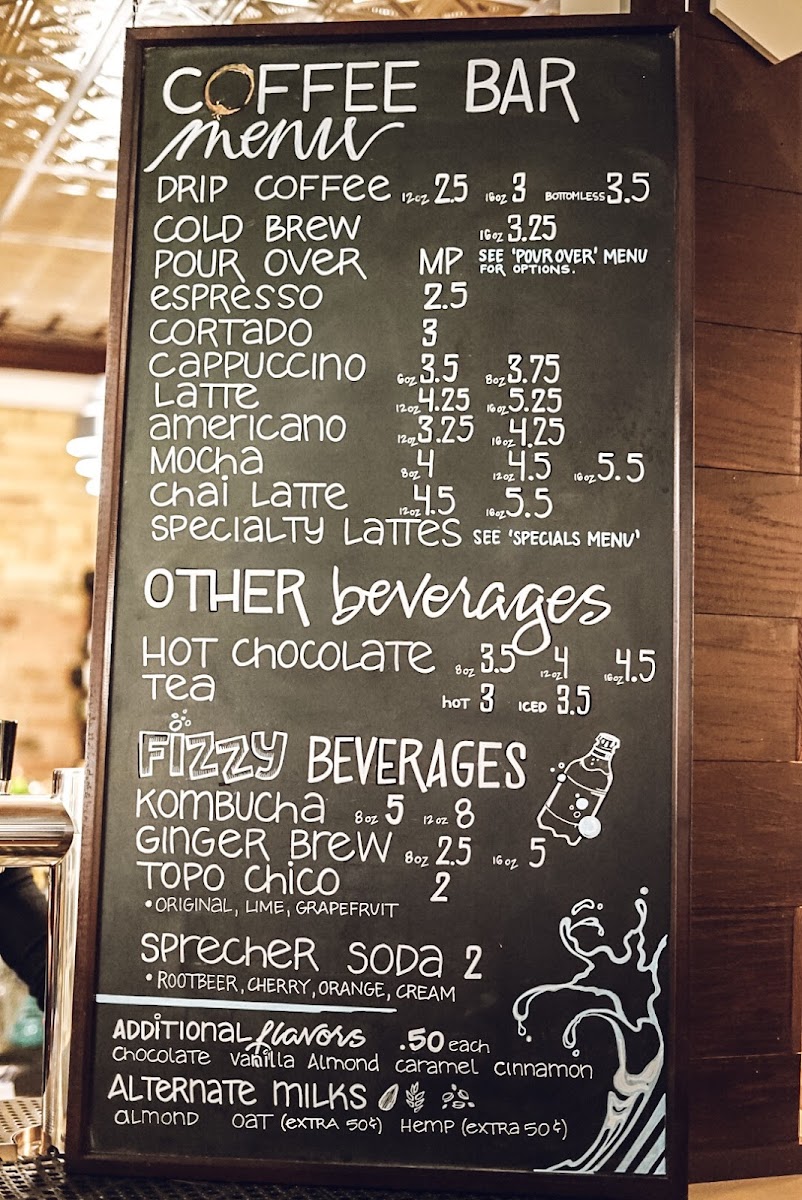 COFFEE BAR
menu
DRIP COFFEE 12oz 2.5 16oz 3 BOTTOMLESS 3.5
COLD BREW 16oz 3.25
POUR OVER MP SEE 'POUR OVER' MENU
FOR OPTIONS.
espresso 2.5
CORTADO 3
cappuccino 6oz 3.5 8oz 3.75
Latte 12oz 4.25 16oz 5.25
americano 12oz 3.25 16oz 4.25
Mocha 8oz 4 12oz 4.5 16oz 5.5
chai Latte 12oz 4.5 16oz 5.5
SPECIALTY LATTES SEE 'SPECIALS MENU'
OTHER beverages
HOT chocolate 8oz 3.5 12oz 4 16oz 4.5
Tea HOT 3 ICED 3.5
FIZZY BEVERAGES
Kombucha 8oz 5 12oz 8
GINGER BREW 8oz 2.5 16oz 5
TOPO chico 2
• ORIGINAL, LIME, GRAPEFRUIT
SPRECHER SODA 2
• ROOTBEER, CHERRY, ORANGE, CREAM
ADDITIONAL flavors .50 each
chocolate vanilla Almond caramel cinnamon
ALTERNATE MILKS
almond OAT (EXTRA 50¢) HEMP (EXTRA 50¢)